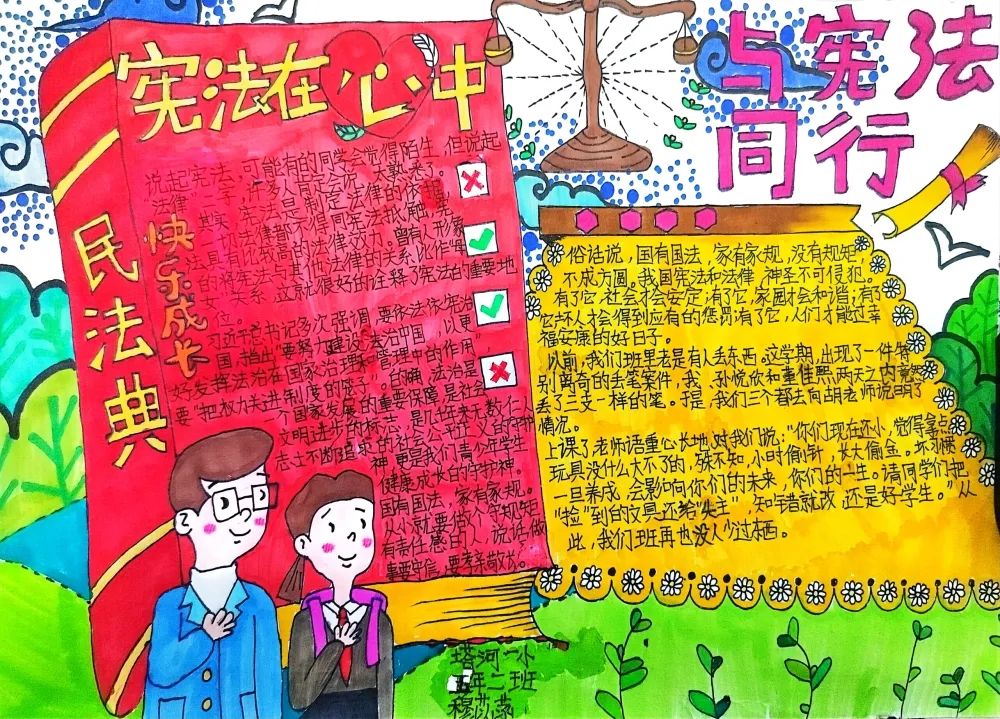 宪法在心中
与宪法
同行
民法典
快乐成长
说起宪法,可能有的同学会觉得陌生,但说起
"法律"二字,许多人肯定会说"太熟悉了。
其实,宪法是制定法律的依据,
一切法律都不得同宪法抵触,宪
法具有比较高的法律效力。曾有人形象
的将宪法与其他法律的关系,比作"母
女"关系,这就很好的诠释了宪法的重要地
位。
习近平总书记多次强调,要依法依宪治
国,指出"要努力建设法治中国,以更
好发挥法治在国家治理和管理中的作用"
要"把权力关进制度的笼子"。的确,法治是
一个国家发展的重要保障,是社会
文明进步的标志,是几千年来无数仁人
志士不断追求的社会公平正义的守护
神,更是我们青少年学生
健康成长的守护神。
国有国法,家有家规。
从小就要做人守规矩
有责任感的人,说话做
事要守信,要孝亲敬长。
俗话说,国有国法,家有家规,没有规矩
不成方圆。我国宪法和法律,神圣不可侵犯。
有了它,社会才会安定;有了它,家园才会和谐;有了
它,坏人才会得到应有的惩罚;有了它,人们才能过幸
福安康的好日子。
以前,我们班里老是有人丢东西。这学期,出现了一件特
别离奇的丢笔案件,我、孙悦欣和董佳熙,两天之内竟然
丢了三支一样的笔。于是,我们三个都去向胡老师说明了
情况。
上课了,老师语重心长地,对我们说:"你们现在还小,觉得拿点
玩具没什么大不了的,殊不知,小时偷针,长大偷金。坏习惯
一旦养成,会影响你们的未来,你们的一生。请同学们把
"捡"到的文具,还给"失主",知错就改,还是好学生。"从
此,我们班再也没人少过东西。
塔河一小
五年二班